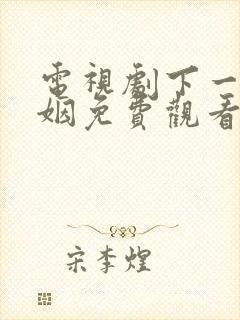 電視劇下一
姻免費觀看
宋李煌